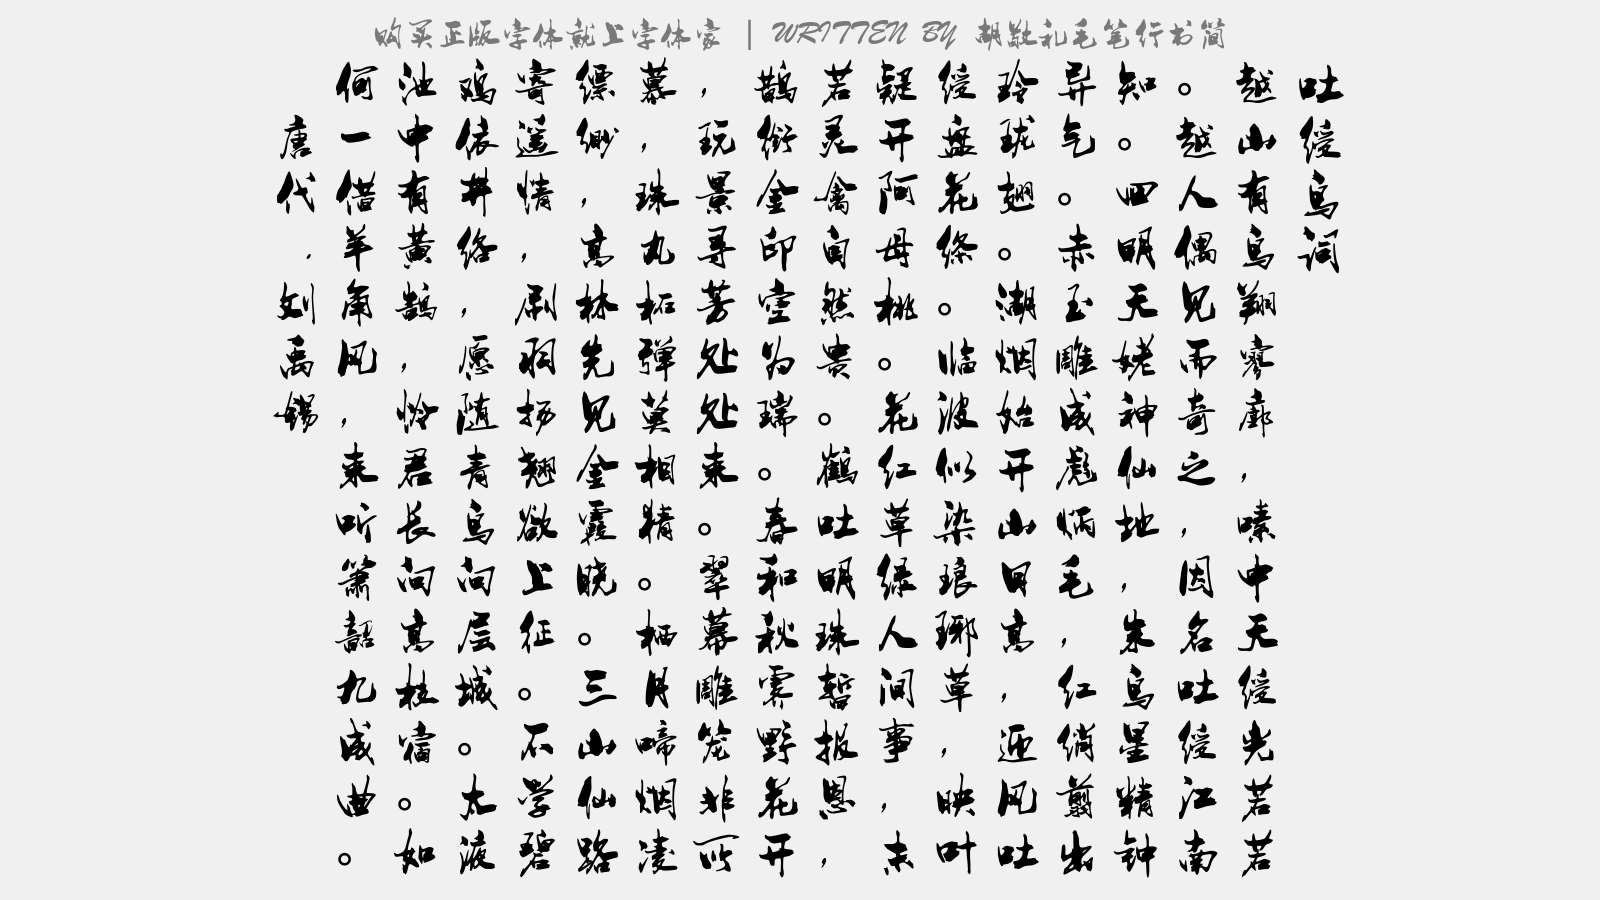 购买正版字体就上字体家 | WRITTEN BY 胡敬礼毛笔行书简
吐绶鸟词
越山有鸟翔寥廓，嗉中天绶光若若
。越人偶见而奇之，因名吐绶江南
知。四明天姥神仙地，朱鸟星精钟
异气。赤玉雕成彪炳毛，红绡翦出
玲珑翅。湖烟始开山日高，迎风吐
绶盘花绦。临波似染琅琊草，映叶
疑开阿母桃。花红草绿人间事，未
若灵禽自然贵。鹤吐明珠暂报恩，
鹊衔金印空为瑞。春和秋霁野花开
，玩景寻芳处处来。翠幕雕笼非所
慕，珠丸柘弹莫相精。栖月啼烟凌
缥缈，高林先见金霞晓。三山仙路
寄遥情，刷羽扬翘欲上征。不学碧
鸡依井络，愿随青鸟向层城。太液
池中有黄鹄，怜君长向高桂宿。如
何一借羊角风，来听箫韶九成曲。
唐代.刘禹锡